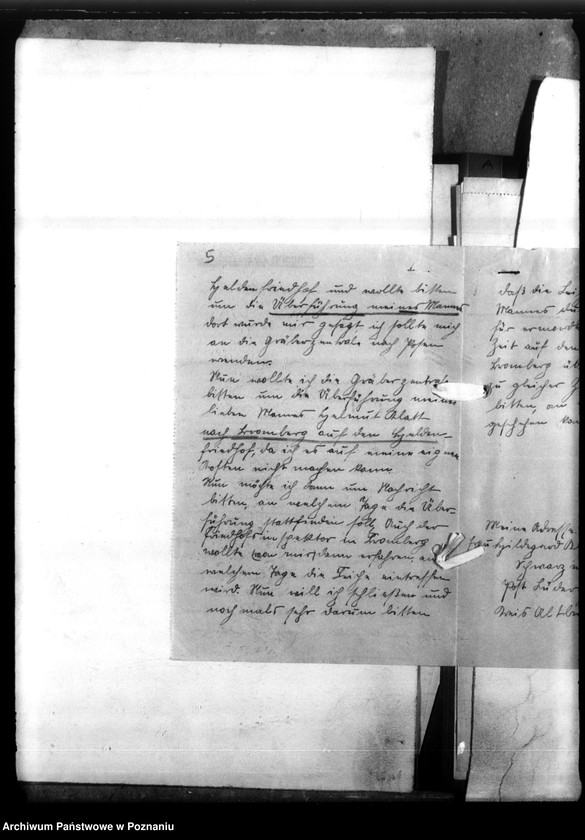 5
Heldenfriedhof und wollte bitten
um die Überführung meines Mannes
dort wurde mir gesagt ich sollte mich
an die Gräberzentrale nach Posen
wenden.
Nun wollte ich die Gräberzentrale
bitten um die Überführung meines
lieben Mannes Helmut Klatt
nach Bromberg auf den Helden-
friedhof, da ich es auf meine eigene
Kosten nicht machen kann.
Nun möchte ich dann um Nachricht
bitten, an welchem Tage die Über-
führung stattfinden soll. Auch der
Friedhofsinspektor in Bromberg
wollte von mir dann erfahren, an
welchem Tage die Leiche eintreffen
wird. Nun will ich schließen und
nochmals sehr darum bitten
daß die Lei
Mannes
für ermord
Zeit auf dem
Bromberg üb
zu gleicher
bitten, an
geschehen kan
Meine Adresse
Schwarz
Post Luder
Kreis
Archiwum Państwowe w Poznaniu